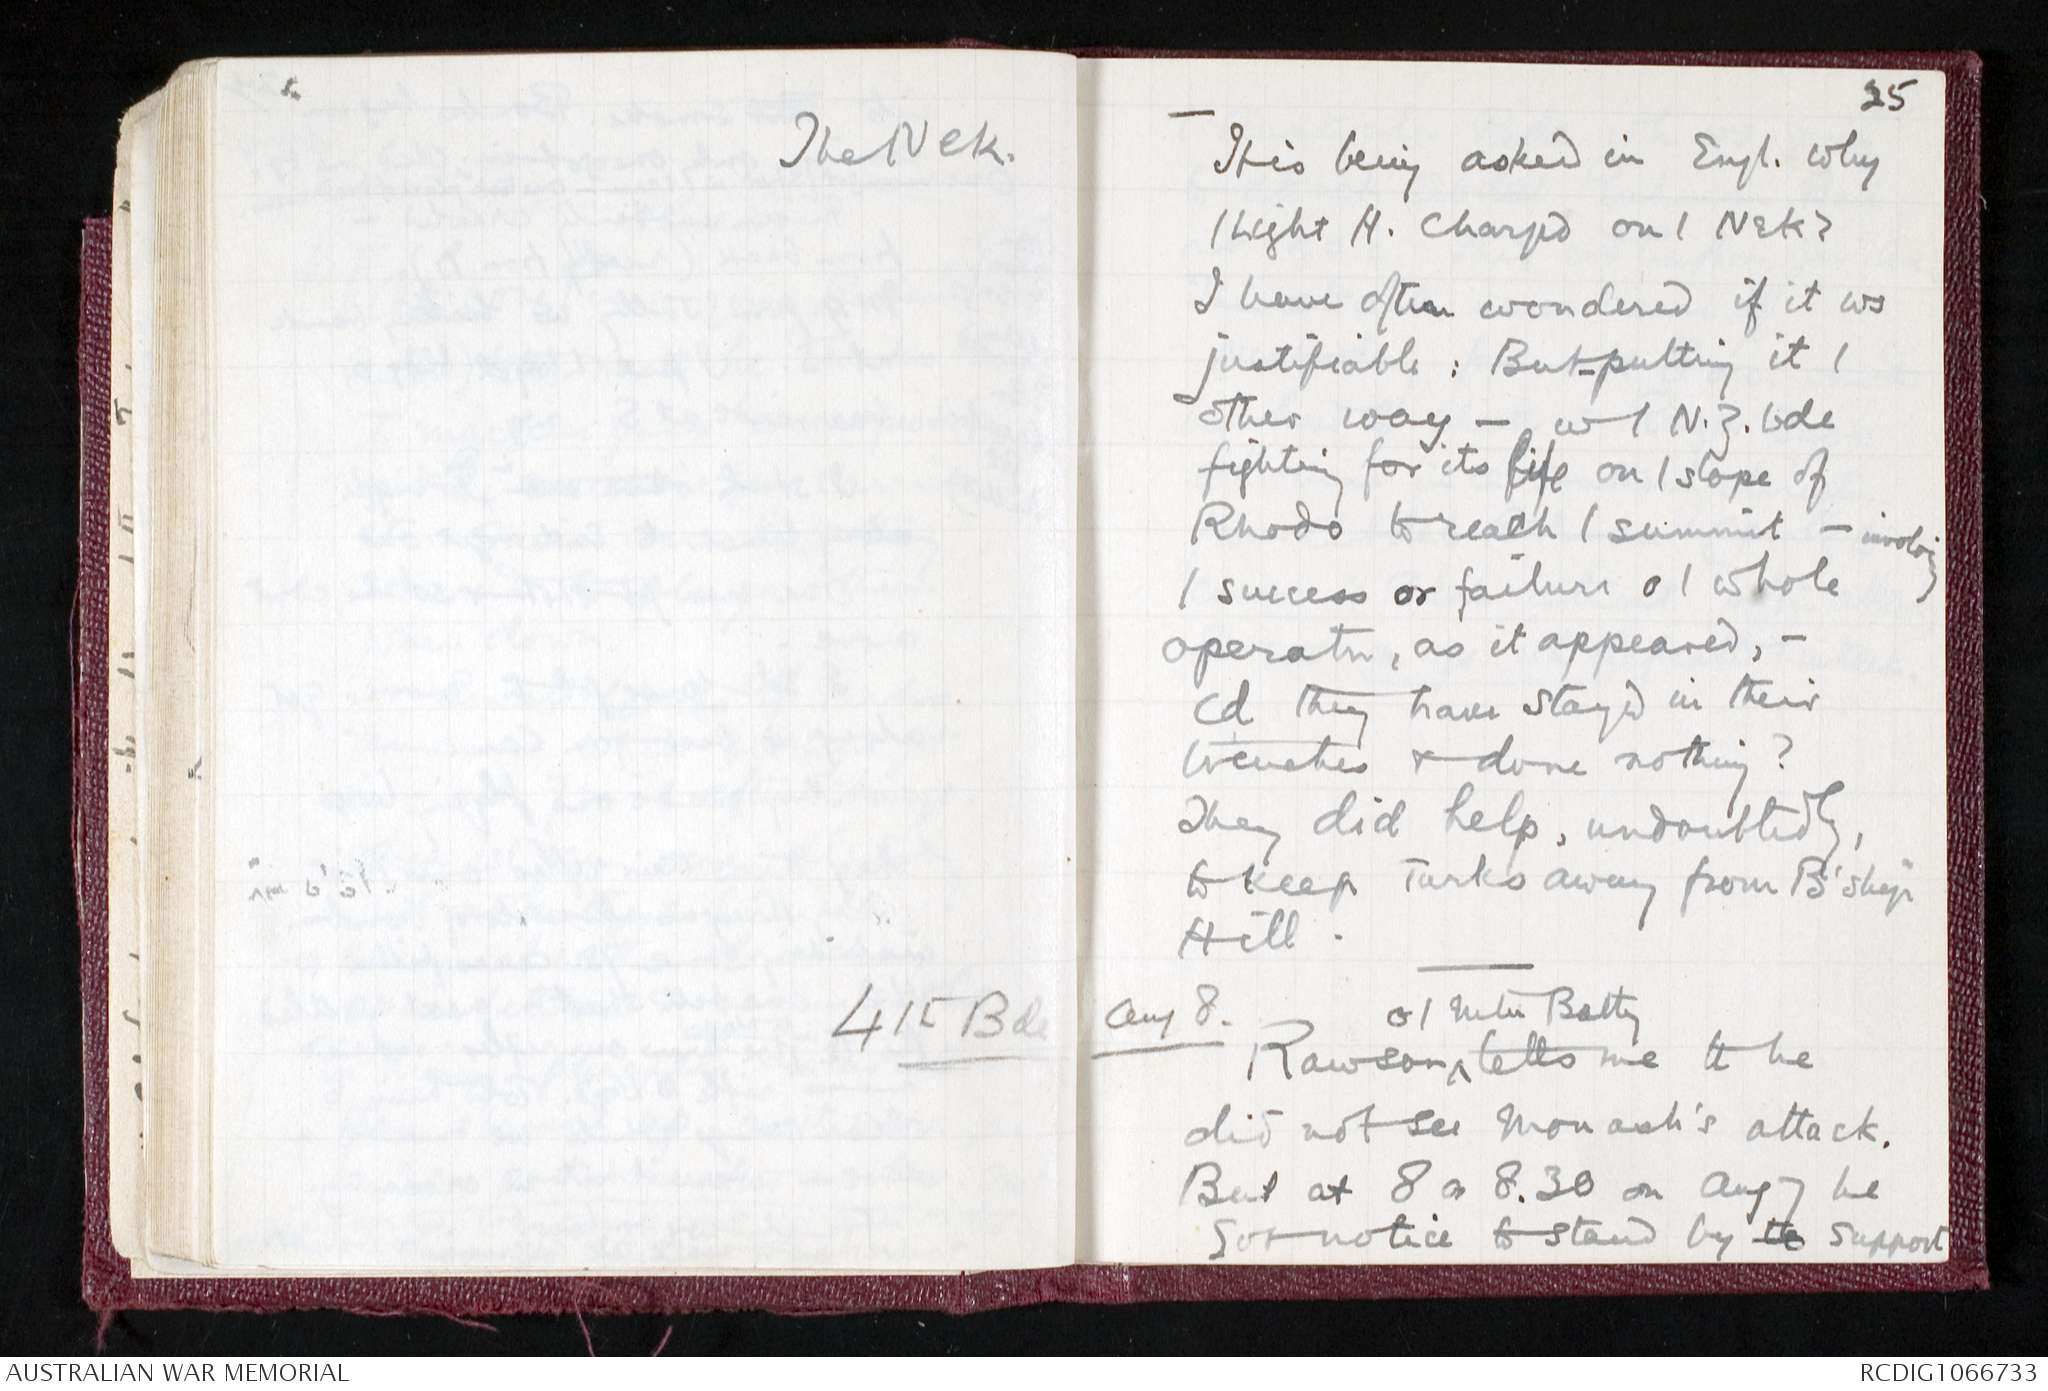 The Nek.
4 Inf Bde
25
It is being asked in Engl. why
/ Light H. charged on / Nek?
I have often wondered if it ws
justifiable; But putting it /
other way — w / N.Z. bde
fighting for its life on / slope of
Rhodo to reach / summit — involvg
/ success or failure o / whole
operatn, as it appeared, —
cd they have stayed in their
trenches & done nothing?
They did help, undoubtedly,
to keep Turks away from B'ship
Hill.
Aug 8.
o / Mtn Batty
Rawson ^ tells me tt he
did not see Monash's attack.
But at 8 or 8.30 on Aug 7 he
got notice to stand by to support
AUSTRALIAN WAR MEMORIAL
RCDIG1066733